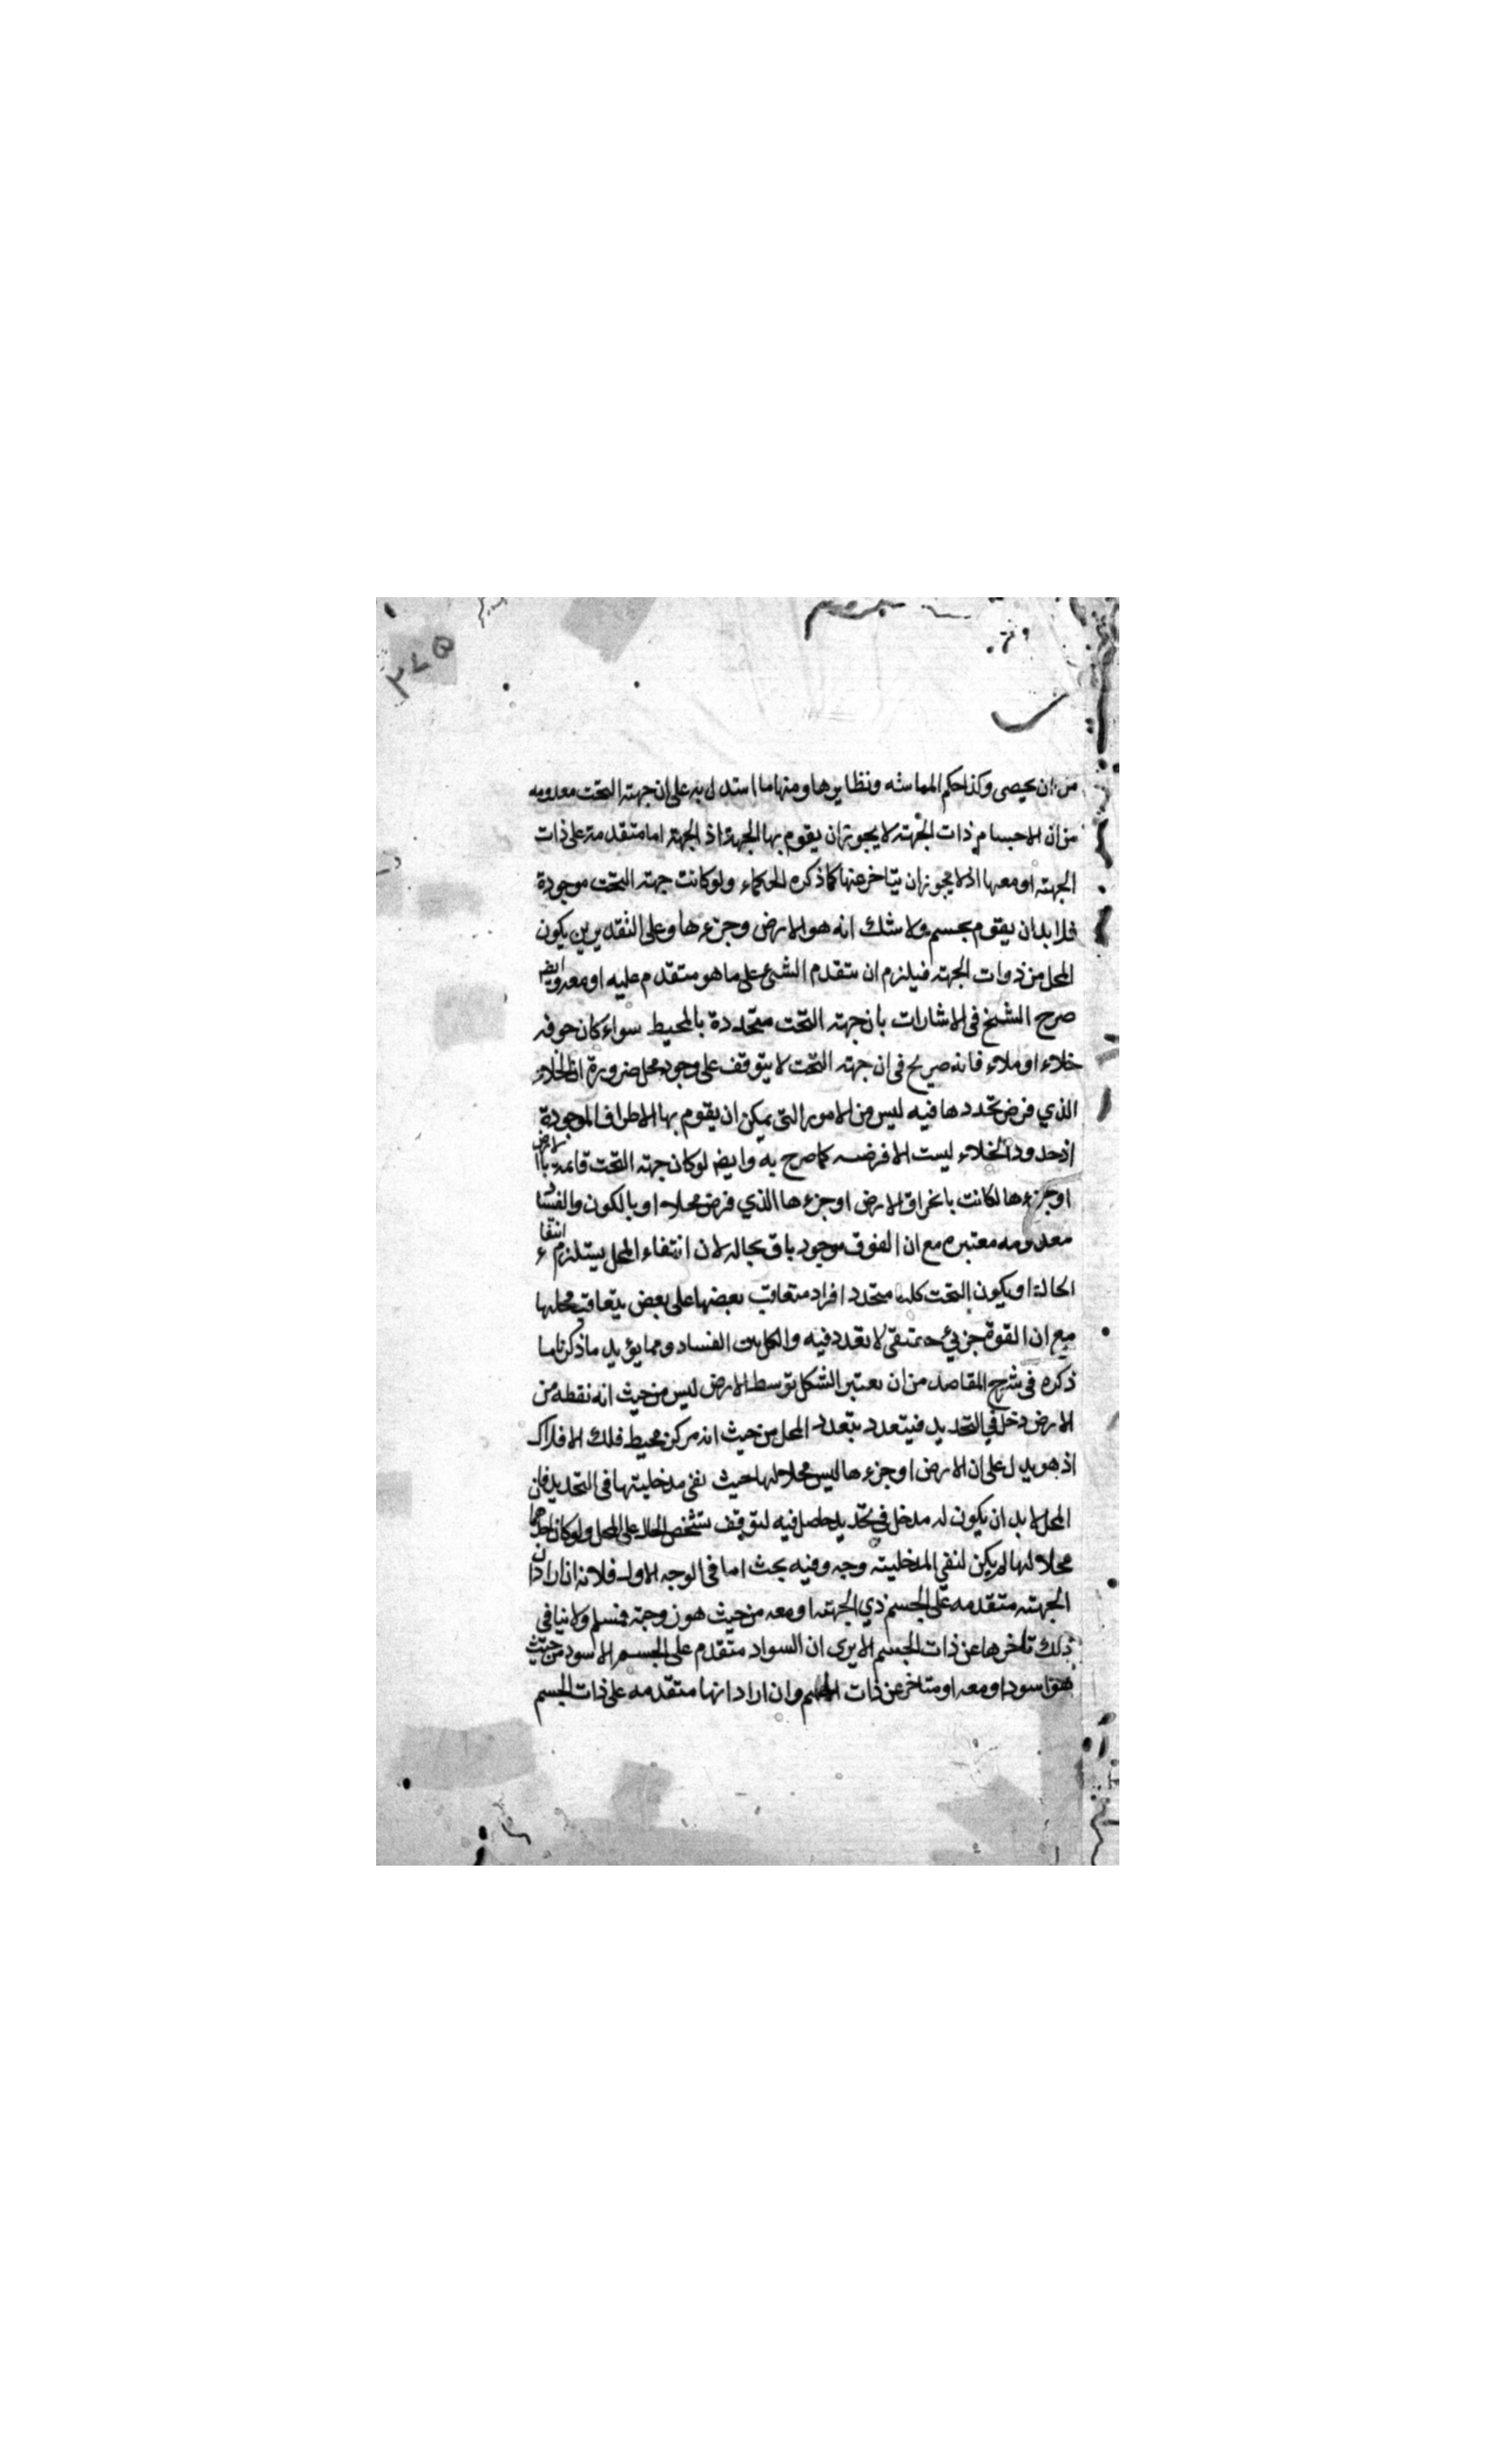 من ان يحصى وكذا حكم المماسه ونظايرها ومنها ما استدل به على ان جهة التحت معدومه
من ان الاجسام ذات الجهة لا يجوز ان يقوم بها الجهة اذ الجهة اما متقدمة على ذات
الجهة او معها اذ لا يجوز ان يتاخر عنها كما ذكره الحكماء ولو كانت جهة التحت موجودة
فلا بد ان يقوم بجسم ولا شك انه هو الارض وجزءها وعلى التقديرين يكون
المحل من ذوات الجهة فيلزم ان يتقدم الشئ على ما هو متقدم عليه او معه وايضا
صرح الشيخ في الاشارات بان جهة التحت متحددة بالمحيط سواء كان جوفه
خلاء او ملاء فانه صريح في ان جهة التحت لا يتوقف على وجود محل ضرورة ان الخلاء
الذي فرض تحددها فيه ليس من الامور التي يمكن ان يقوم بها الاطراف الموجودة
اذ حدود الخلاء ليست الا فرضيه كما صرح به وايضا لو كان جهة التحت قائمة بالارض
او جزءها لكانت بانخراق الارض او جزءها الذي فرض محلا او بالكون والفساد
معدومه معتبره مع ان الفوق موجود باق بحاله لان انتفاء المحل يستلزم انتفاء
الحالة او يكون التحت كليا متحدد افراد متعاقب بعضها على بعض بتعاقب محلها
مع ان الفوق جزئي حقيقي لا تعدد فيه والكل بين الفساد ومما يؤيد ما ذكرنا ما
ذكره في شرح المقاصد من ان يعتبر الشكل توسط الارض ليس من حيث انه نقطه من
الارض دخل في التحديد فيتعدد بتعدد المحل من حيث انه مركز محيط فلك الافلاك
اذ هو يدل على ان الارض او جزءها ليس محلا لها حيث نفى مدخليتها في التحديد فان
المحل لا بد ان يكون له مدخل في تحديد حاصل فيه لتوقف تشخص الحال على المحل ولو كان احدهما
محلا لها لم يكن لنفي المدخلية وجه وفيه بحث اما في الوجه الاول فلانه ان اراد ان
الجهة متقدمه على الجسم ذي الجهة او معه من حيث هو ذو جهة فمسلم ولا ينافي
ذلك تاخرها عن ذات الجسم الا يرى ان السواد متقدم على الجسم الاسود من حيث
هو اسود او معه او متاخر عن ذات الجسم وان اراد انها متقدمه على ذات الجسم